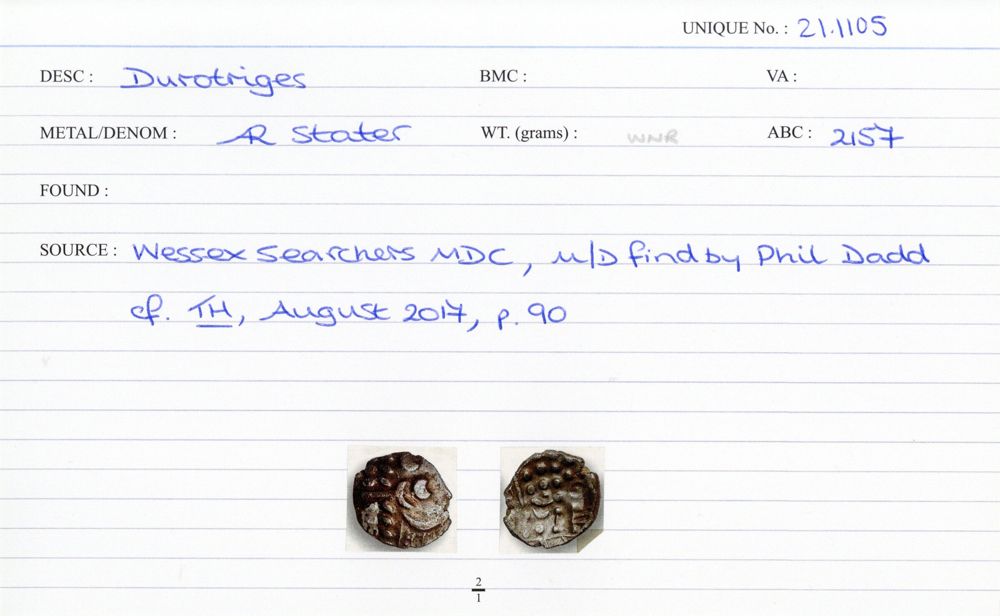 UNIQUE No. : 21.1105
DESC : Durotriges BMC : VA :
METAL/DENOM : AR Stater WT. (grams) : WNR ABC : 2157
FOUND :
SOURCE : Wessex Searchers MDC, M/D find by Phil Dadd
cf. TH, August 2017, p. 90
2
1